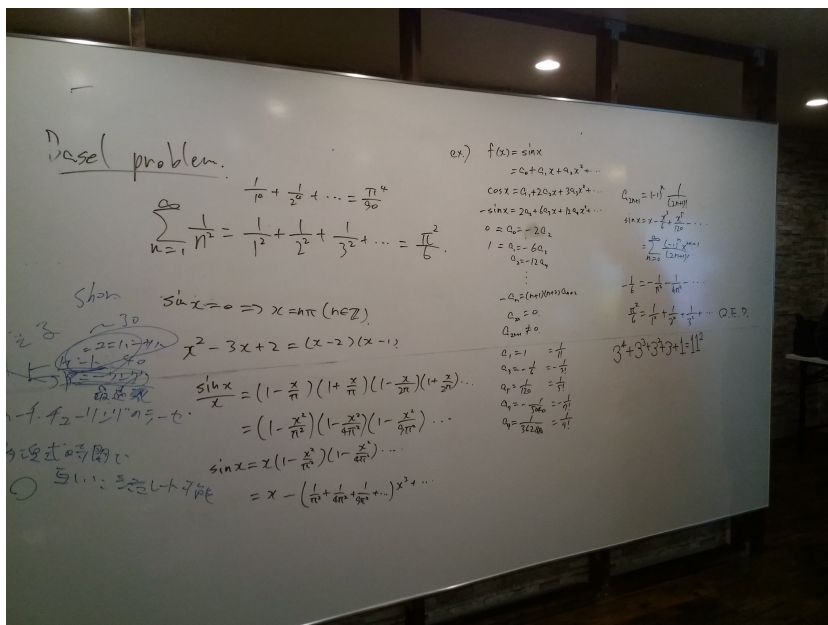 Basel problem.
1/1⁴ + 1/2⁴ + ··· = π⁴/90
∞
∑ 1/n² = 1/1² + 1/2² + 1/3² + ··· = π²/6.
n=1
sin x = 0 => x = nπ (n∈ℤ)
x² - 3x + 2 = (x-2)(x-1)
sin x/x = (1 - x/π)(1 + x/π)(1 - x/2π)(1 + x/2π)···
= (1 - x²/π²)(1 - x²/4π²)(1 - x²/9π²)···
sin x = x(1 - x²/π²)(1 - x²/4π²)····
= x - (1/π² + 1/4π² + 1/9π² + ···)x³ + ···
ex.) f(x) = sin x
= a₀ + a₁x + a₂x² + ···
cos x = a₁ + 2a₂x + 3a₃x² + ···
-sin x = 2a₂ + 6a₃x + 12a₄x² + ···
0 = a₀ = -2a₂
1 = a₁ = -6a₃
a₂ = -12a₄
⋮
-aₙ = (n+1)(n+2)aₙ₊₂
a₂ₙ = 0
a₂ₙ₊₁ ≠ 0
a₁ = 1 = 1/1!
a₃ = -1/6 = -1/3!
a₅ = 1/120 = 1/5!
a₇ = -1/5040 = -1/7!
a₉ = 1/362880 = 1/9!
a₂ₙ₊₁ = (-1)ⁿ 1/(2n+1)!
sin x = x - x³/6 + x⁵/120 - ····
= ∑ₙ₌₀^∞ (-1)ⁿx²ⁿ⁺¹/(2n+1)!
-1/6 = -1/π² - 1/4π² - ···
π²/6 = 1/1² + 1/2² + 1/3² + ··· Q.E.D.
3⁴+3³+3²+3+1=11²
~30